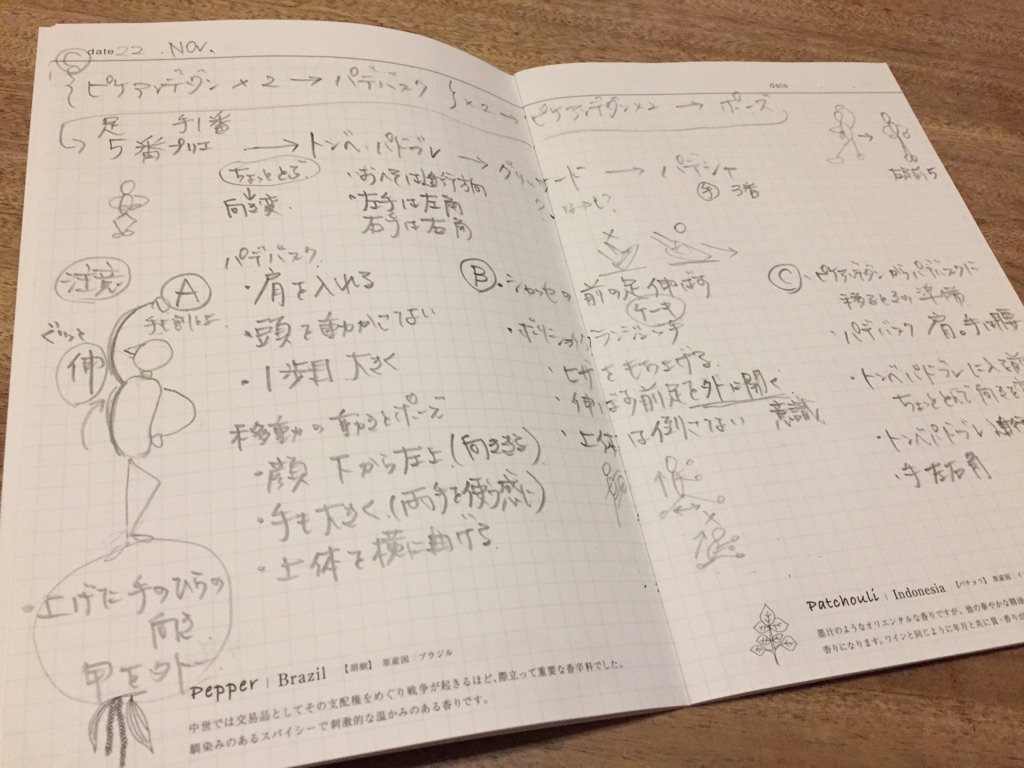 C date 22 NOV.
{ピケアンデダン×2 → パデバスク }×2 →
足 手1番
5番プリエ → トンベ パドブレ → グリッサード → パデシャ
ちょっととる
向き変
・おへそは進行方向
・左手は左角
右手は右角
注意
A
ぐりっと
伸
パデバスク
・肩を入れる
・頭を動かさない
・1歩目 大きく
・顔 下から左上(向きを)
・手も大きく(両手を使う感じ)
・上体を横に曲げる
・上げた手のひらの
向き
甲を外
pepper | Brazil 【胡椒】 原産国:ブラジル
中世では交易品としてその支配権をめぐり戦争が起きるほど、際立って重要な香辛料でした。
馴染みのあるスパイシーで刺激的な温かみのある香りです。
date
ピケアンデダン×2 → ポーズ
手 3番
× ○
B ・シャッセの前の足伸ばす
ケーキ
・ヒザをもち上げる
・伸ばす前足を外に開く
意識
・上体は倒さない
×
C ・ピケアンデダンからパデバスクに
移るときの準備
・パデバスク 肩。手は腰
・トンベパドブレに入る前
ちょっととって向きを
・トンベパドブレ 進行
・手左右角
patchouli | Indonesia 【パチュリ】 原産国:イ
墨汁のようなオリエンタルな香りですが、他の華やかな精油
香りになります。ワインと同じように年月と共に質・香りが